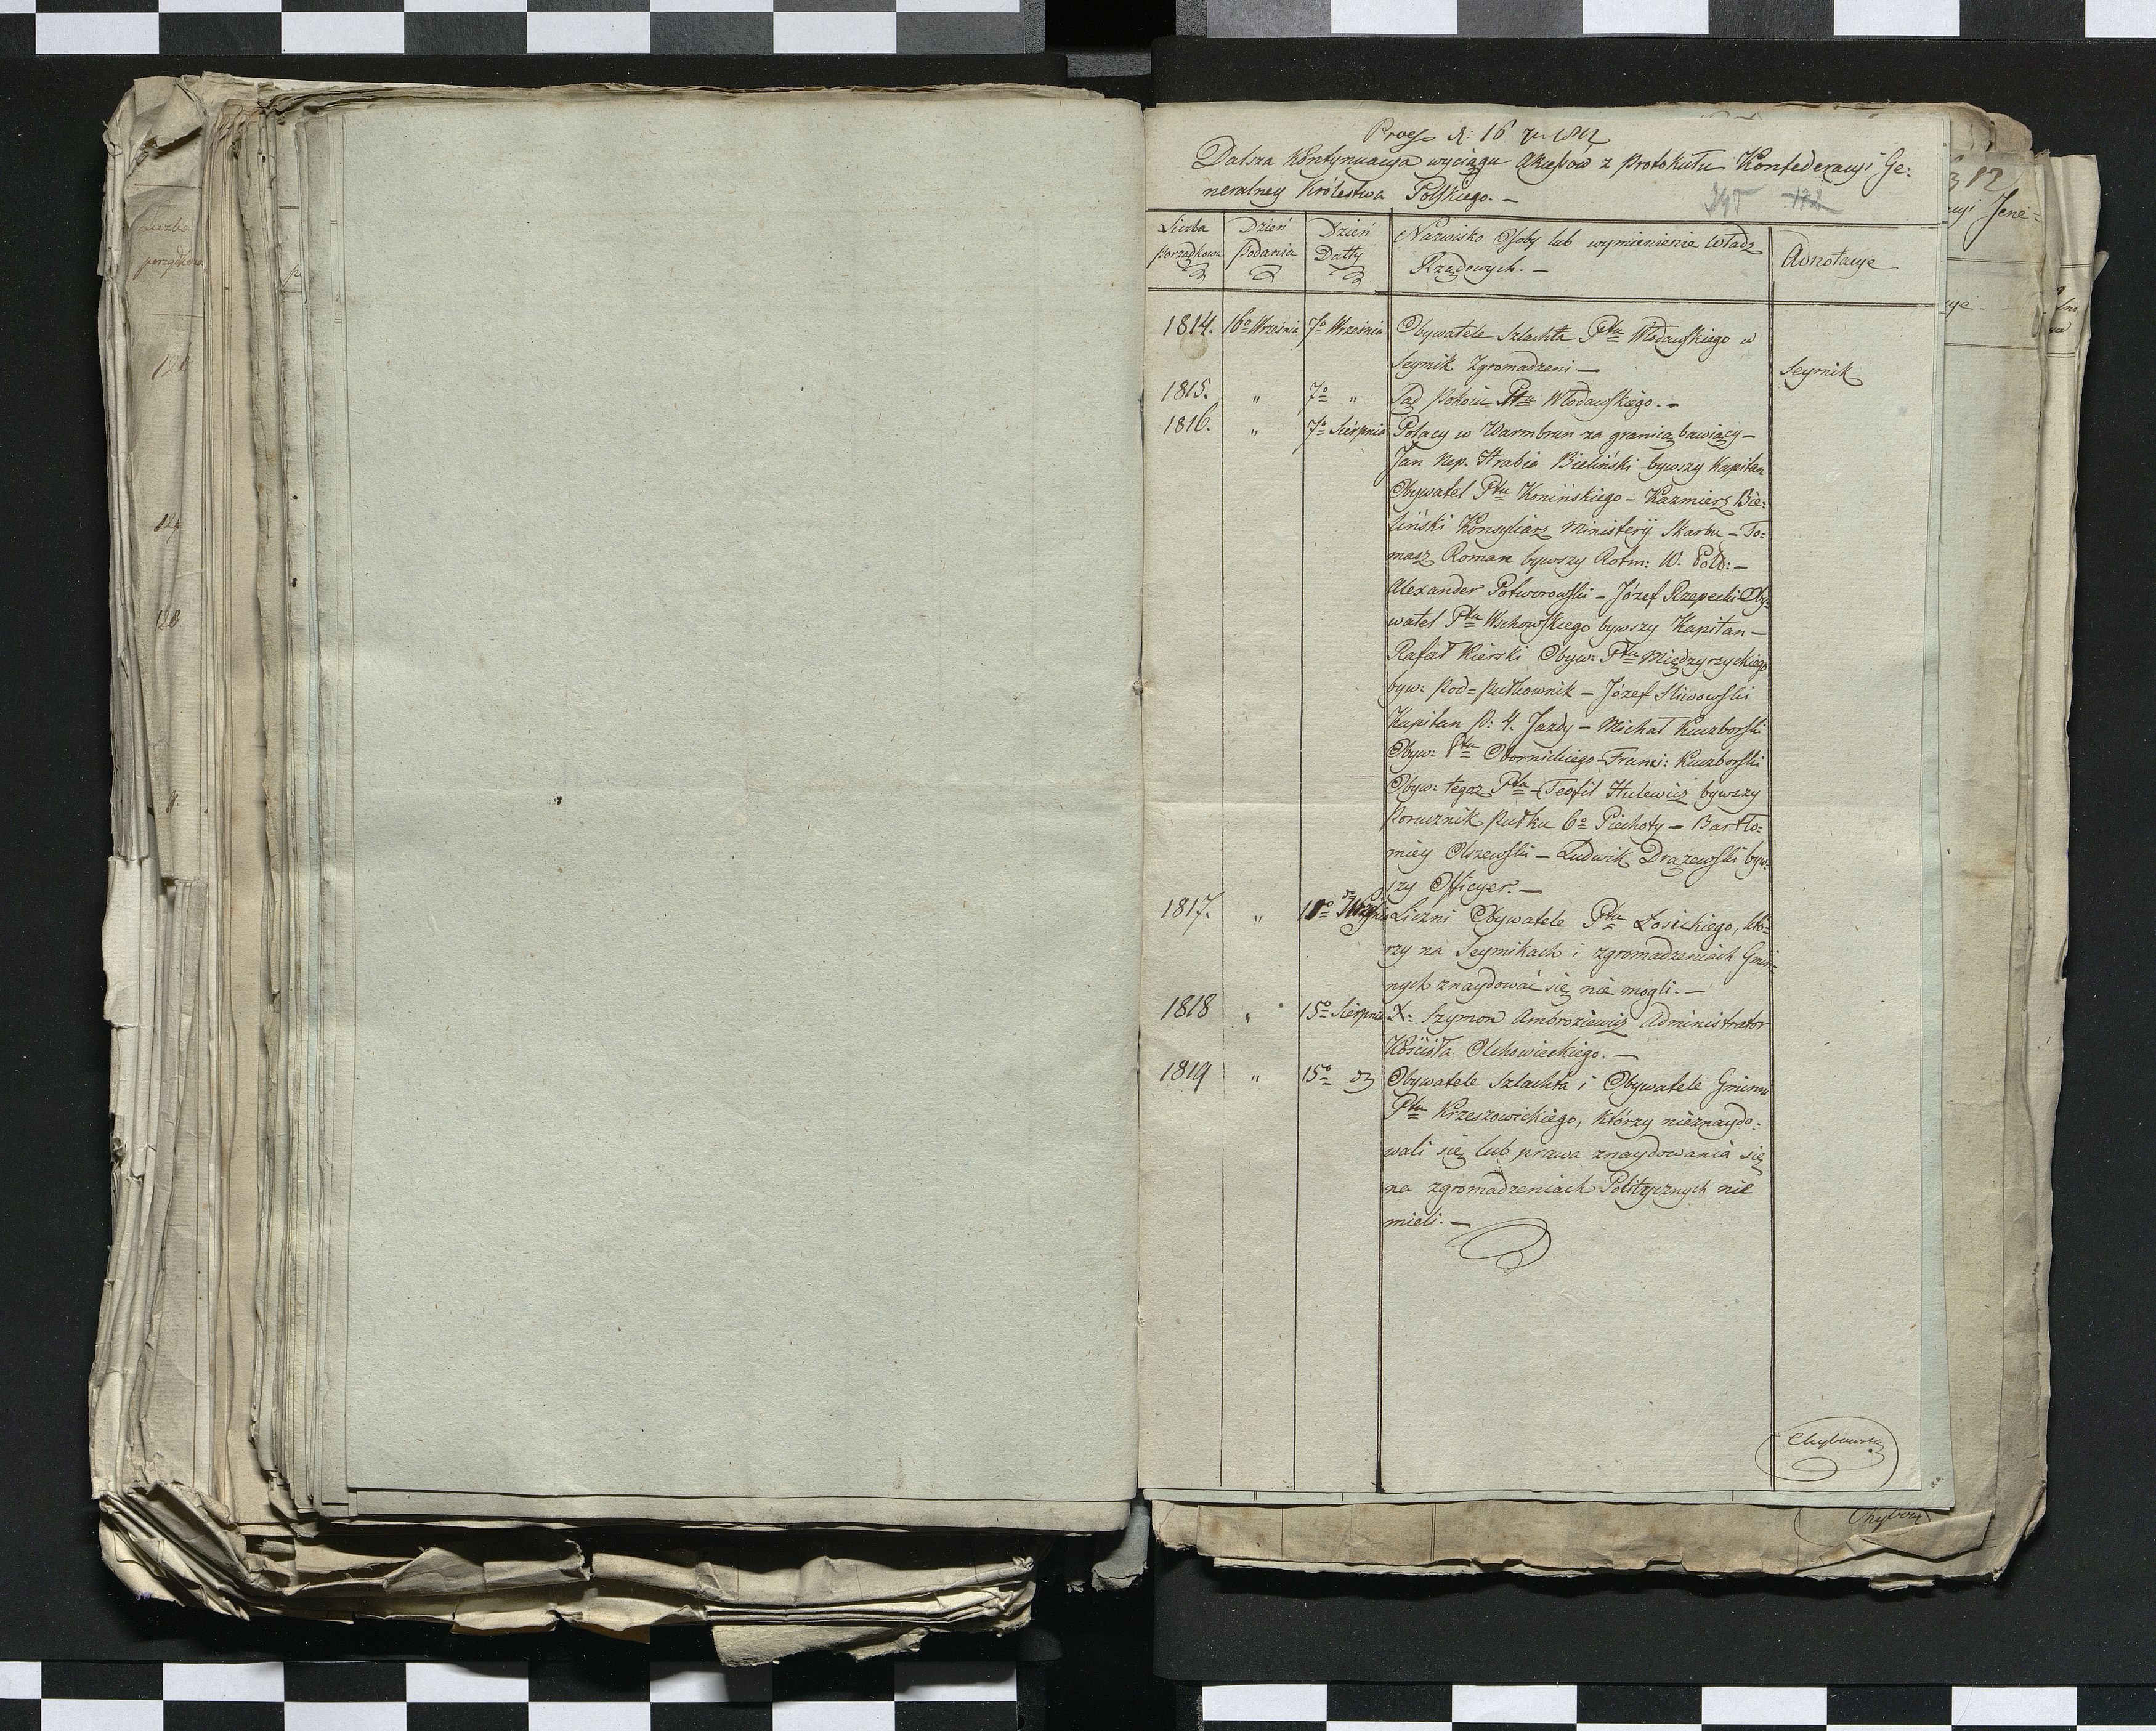 Liczba
porządkowa
128.
Dalsza Kontynuacya wyciągu Akcessów z Protokułu Konfederacyi Ge:
neralney Królestwa Polskiego. —
Liczba porządkowa
Dzień Podania
Dzień Datty
Nazwisko Osoby lub wymienienie Władz
Rządowych. —
Adnotacye
1814. 16º Września 7º Września Obywatele Szlachta Ptu Włodawskiego w
Seymik Zgromadzeni —
Seymik
1815. " 7º " Sąd Pokoiu Ptu Włodawskiego. —
1816. " 7º Sierpnia Polacy w Warmbrun za granicą bawiący —
Jan Nep. Hrabia Bieliński bywszy Kapitan
Obywatel Ptu Konińskiego — Kazmierz Bie:
liński Konsyliarz Ministerij Skarbu — To:
masz Roman bywszy Rotm: W. Pols: —
Alexander Potworowski — Józef Rzepecki Oby:
watel Ptu Wschowskiego bywszy Kapitan —
Rafał Kierski Obyw: Ptu Międzyrzyckiego
byw: Pod=Pułkownik — Józef Sliwowski
Kapitan P: 4. Jazdy — Michał Kuczborski
Obyw: Ptu Obornickiego — Franc: Kuczborski
Obyw: tegoz Ptu — Teofil Hulewicz bywszy
Porucznik Pułku 6º Piechoty — Bartło:
miey Olszewski — Ludwik Drazewski byw:
szy Officyer. —
1817. " Liczni Obywatele Ptu Łosickiego, któ:
rzy na Seymikach i zgromadzeniach Gmin:
nych znaydować się nie mogli. —
1818 " 15º Sierpnia X: Szymon Ambroziewicz Administrator
Kościoła Olchowieckiego. —
1819 " 15º Obywatele Szlachta i Obywatele Gminni
Ptu Krzeszowickiego, którzy nieznaydo:
wali się lub prawa znaydowania się
na zgromadzeniach Politycznych nie
mieli. —
Chybowski